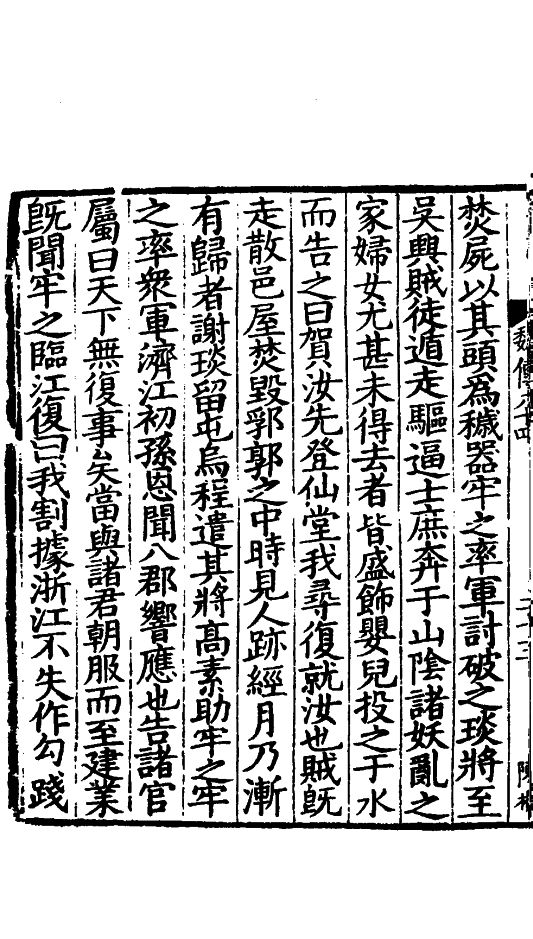 焚屍以其頭爲穢器牢之率軍討破之琰將至
吳興賊徒遁走驅逼士庶奔于山陰諸妖亂之
家婦女尤甚未得去者皆盛飾嬰兒投之于水
而告之曰賀汝先登仙堂我尋復就汝也賊旣
走散邑屋焚毀郛郭之中時見人跡經月乃漸
有歸者謝琰留屯烏程遣其將高素助牢之牢
之率衆軍濟江初孫恩聞八郡響應也告諸官
屬曰天下無復事矣當與諸君朝服而至建業
旣聞牢之臨江復曰我割據浙江不失作勾踐